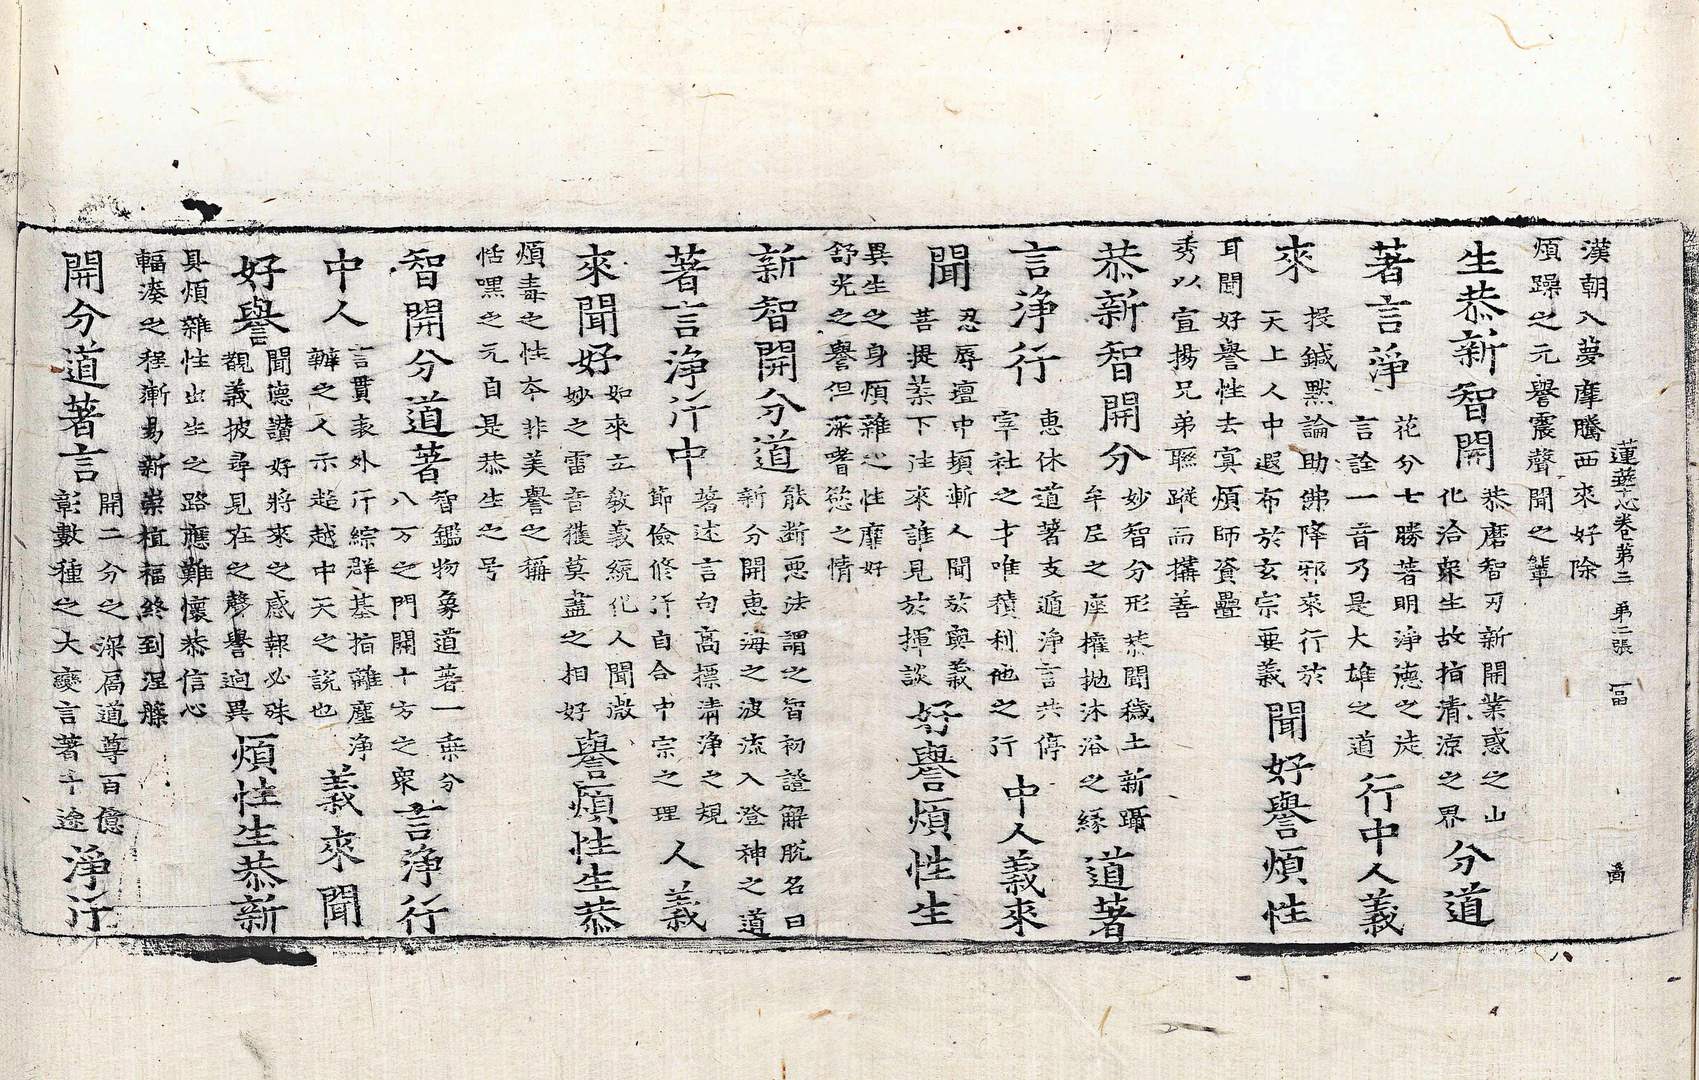 蓮華心卷第三 第二張 冨
漢朝入夢摩騰西來好除
煩躁之元譽震聲聞之輩
生恭新智開
恭磨智刃新開業惑之山
化洽衆生故指清涼之界
分道
著言淨
花分七勝著明淨德之徒
言詮一音乃是大雄之道
行中人義
來
投緘黙論助佛降邪來行於
天上人中遐布於玄宗要義
聞好譽煩性
耳聞好譽性去寘煩師資疊
秀以宣揚兄弟聯蹤而搆善
恭新智開分
妙智分形恭聞穢土新躡
牟尼之座權抛沐浴之緣
道著
言淨行
惠休道著支遁淨言共停
宰社之才唯積利他之行
中人義來
聞
忍辱壇中頓漸人聞於奧義
菩提葉下往來誰見於揮談
好譽煩性生
異生之身煩雜之性靡好
舒光之譽但深嗜慾之情
新智開分道
能断惡法謂之智初證解脫名曰
新分開惠海之波流入澄神之道
著言淨行中
著述言句高摽清淨之規
節儉修行自合中宗之理
人義
來聞好
如來立敎義統化人聞微
妙之雷音獲莫盡之相好
譽煩性生恭
煩毒之性夲非美譽之稱
恬嘿之元自是恭生之号
智開分道著
智鑑物象道著一乘分
八万之門開十方之衆
言淨行
中人
言貫表外行綜群基指離塵淨
辯之人示超越中天之說也
義來聞
好譽
聞德讃好將來之感報必殊
觀義披尋見在之聲譽逈異
煩性生恭新
具煩雜性出生之路應難懷恭信心
輻湊之程漸易新崇植福終到涅槃
開分道著言
開二分之深扃道尊百億
彰數種之大變言著千途
淨行